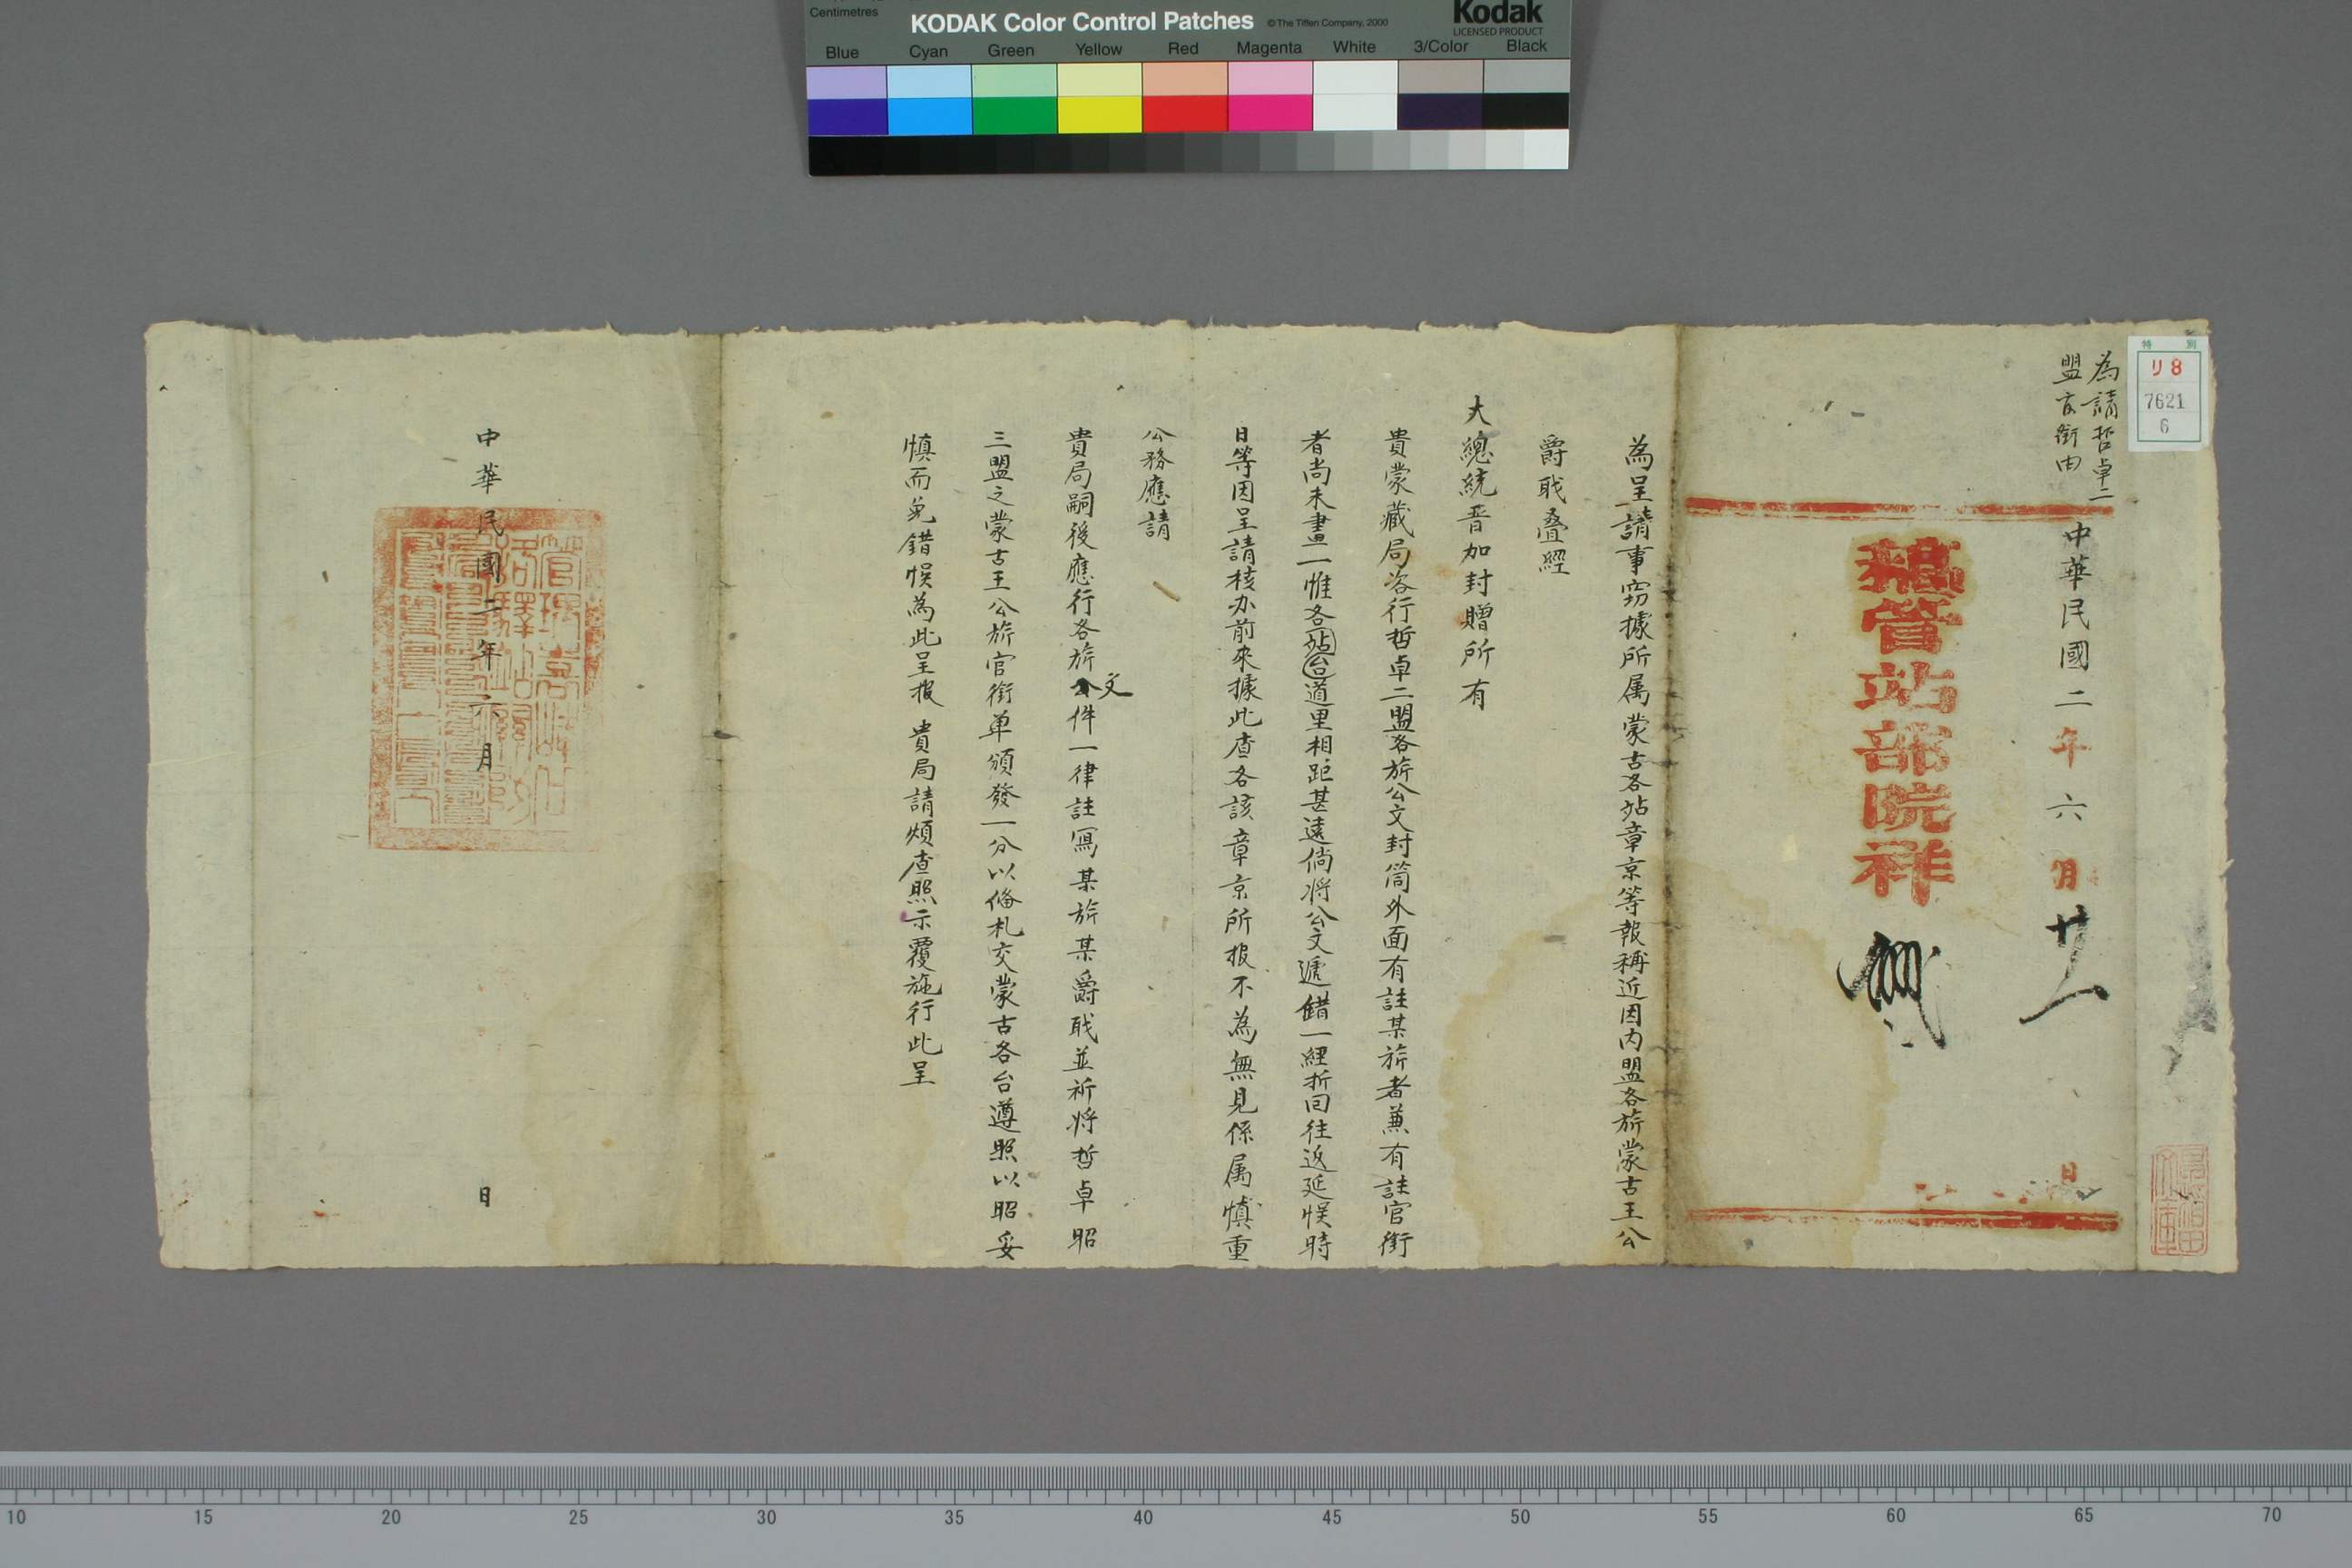 Centimetres
KODAK Color Control Patches © The Tiffen Company, 2000 Kodak
LICENSED PRODUCT
Blue Cyan Green Yellow Red Magenta White 3/Color Black
特別
リ8
7621
6
為請哲卓二
盟官銜由
中華民國二年六月廿一日
總管站部院祥
為呈請事窃據所属蒙古各站章京等報稱近因内盟各旂蒙古王公
爵职叠經
大總統晋加封贈所有
貴蒙藏局咨行哲卓二盟各旂公文封筒外面有註某旂者兼有註官銜
者尚未畫一惟各站台道里相距甚遠倘将公文遞錯一經折回往返延悮時
日等因呈請核办前來據此查各該章京所报不為無見係属慎重
公務應請
貴局嗣後應行各旂文件一律註冩某旂某爵职並祈将哲卓昭
三盟之蒙古王公旂官銜单頒發一分以俻札交蒙古各台遵照以昭妥
慎而免錯悮為此呈报 貴局請煩查照示覆施行此呈
中華民國二年六月 日
10 15 20 25 30 35 40 45 50 55 60 65 70